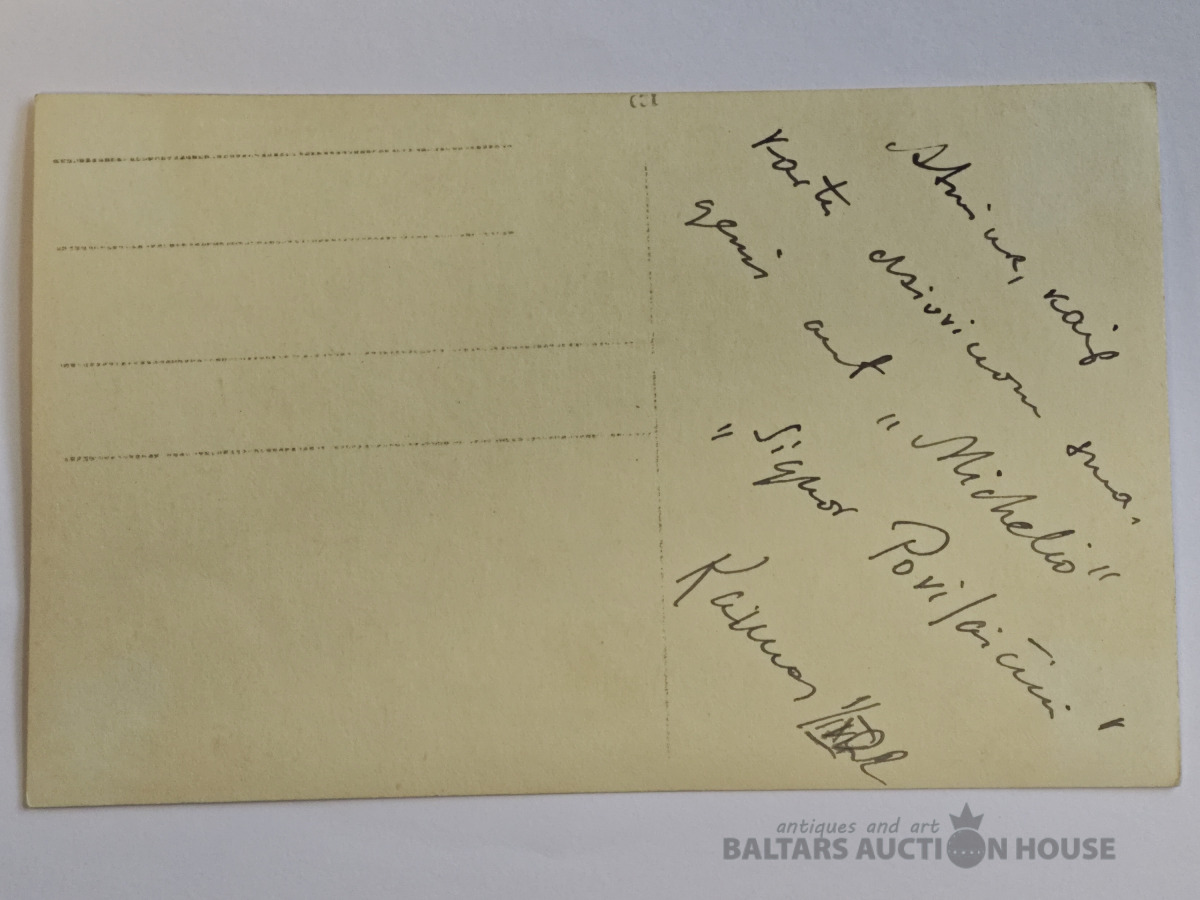 Atmink, kaip
kartu dsiovinom sma.
genis ant "Michelio"
"Signor Povilaičiui"
Kaunas
antiques and art
BALTARS AUCTION HOUSE